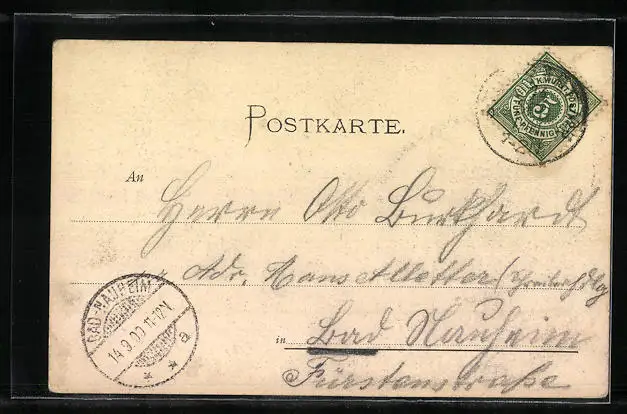 POSTKARTE.
K. WÜRTT. POST
5
FÜNF PFENNIG
An
Herrn Otto Burkhardt
Adr.
in Bad Nauheim
Fürstenstraße
BAD-NAUHEIM
14.9.00.11-12V.
* * a